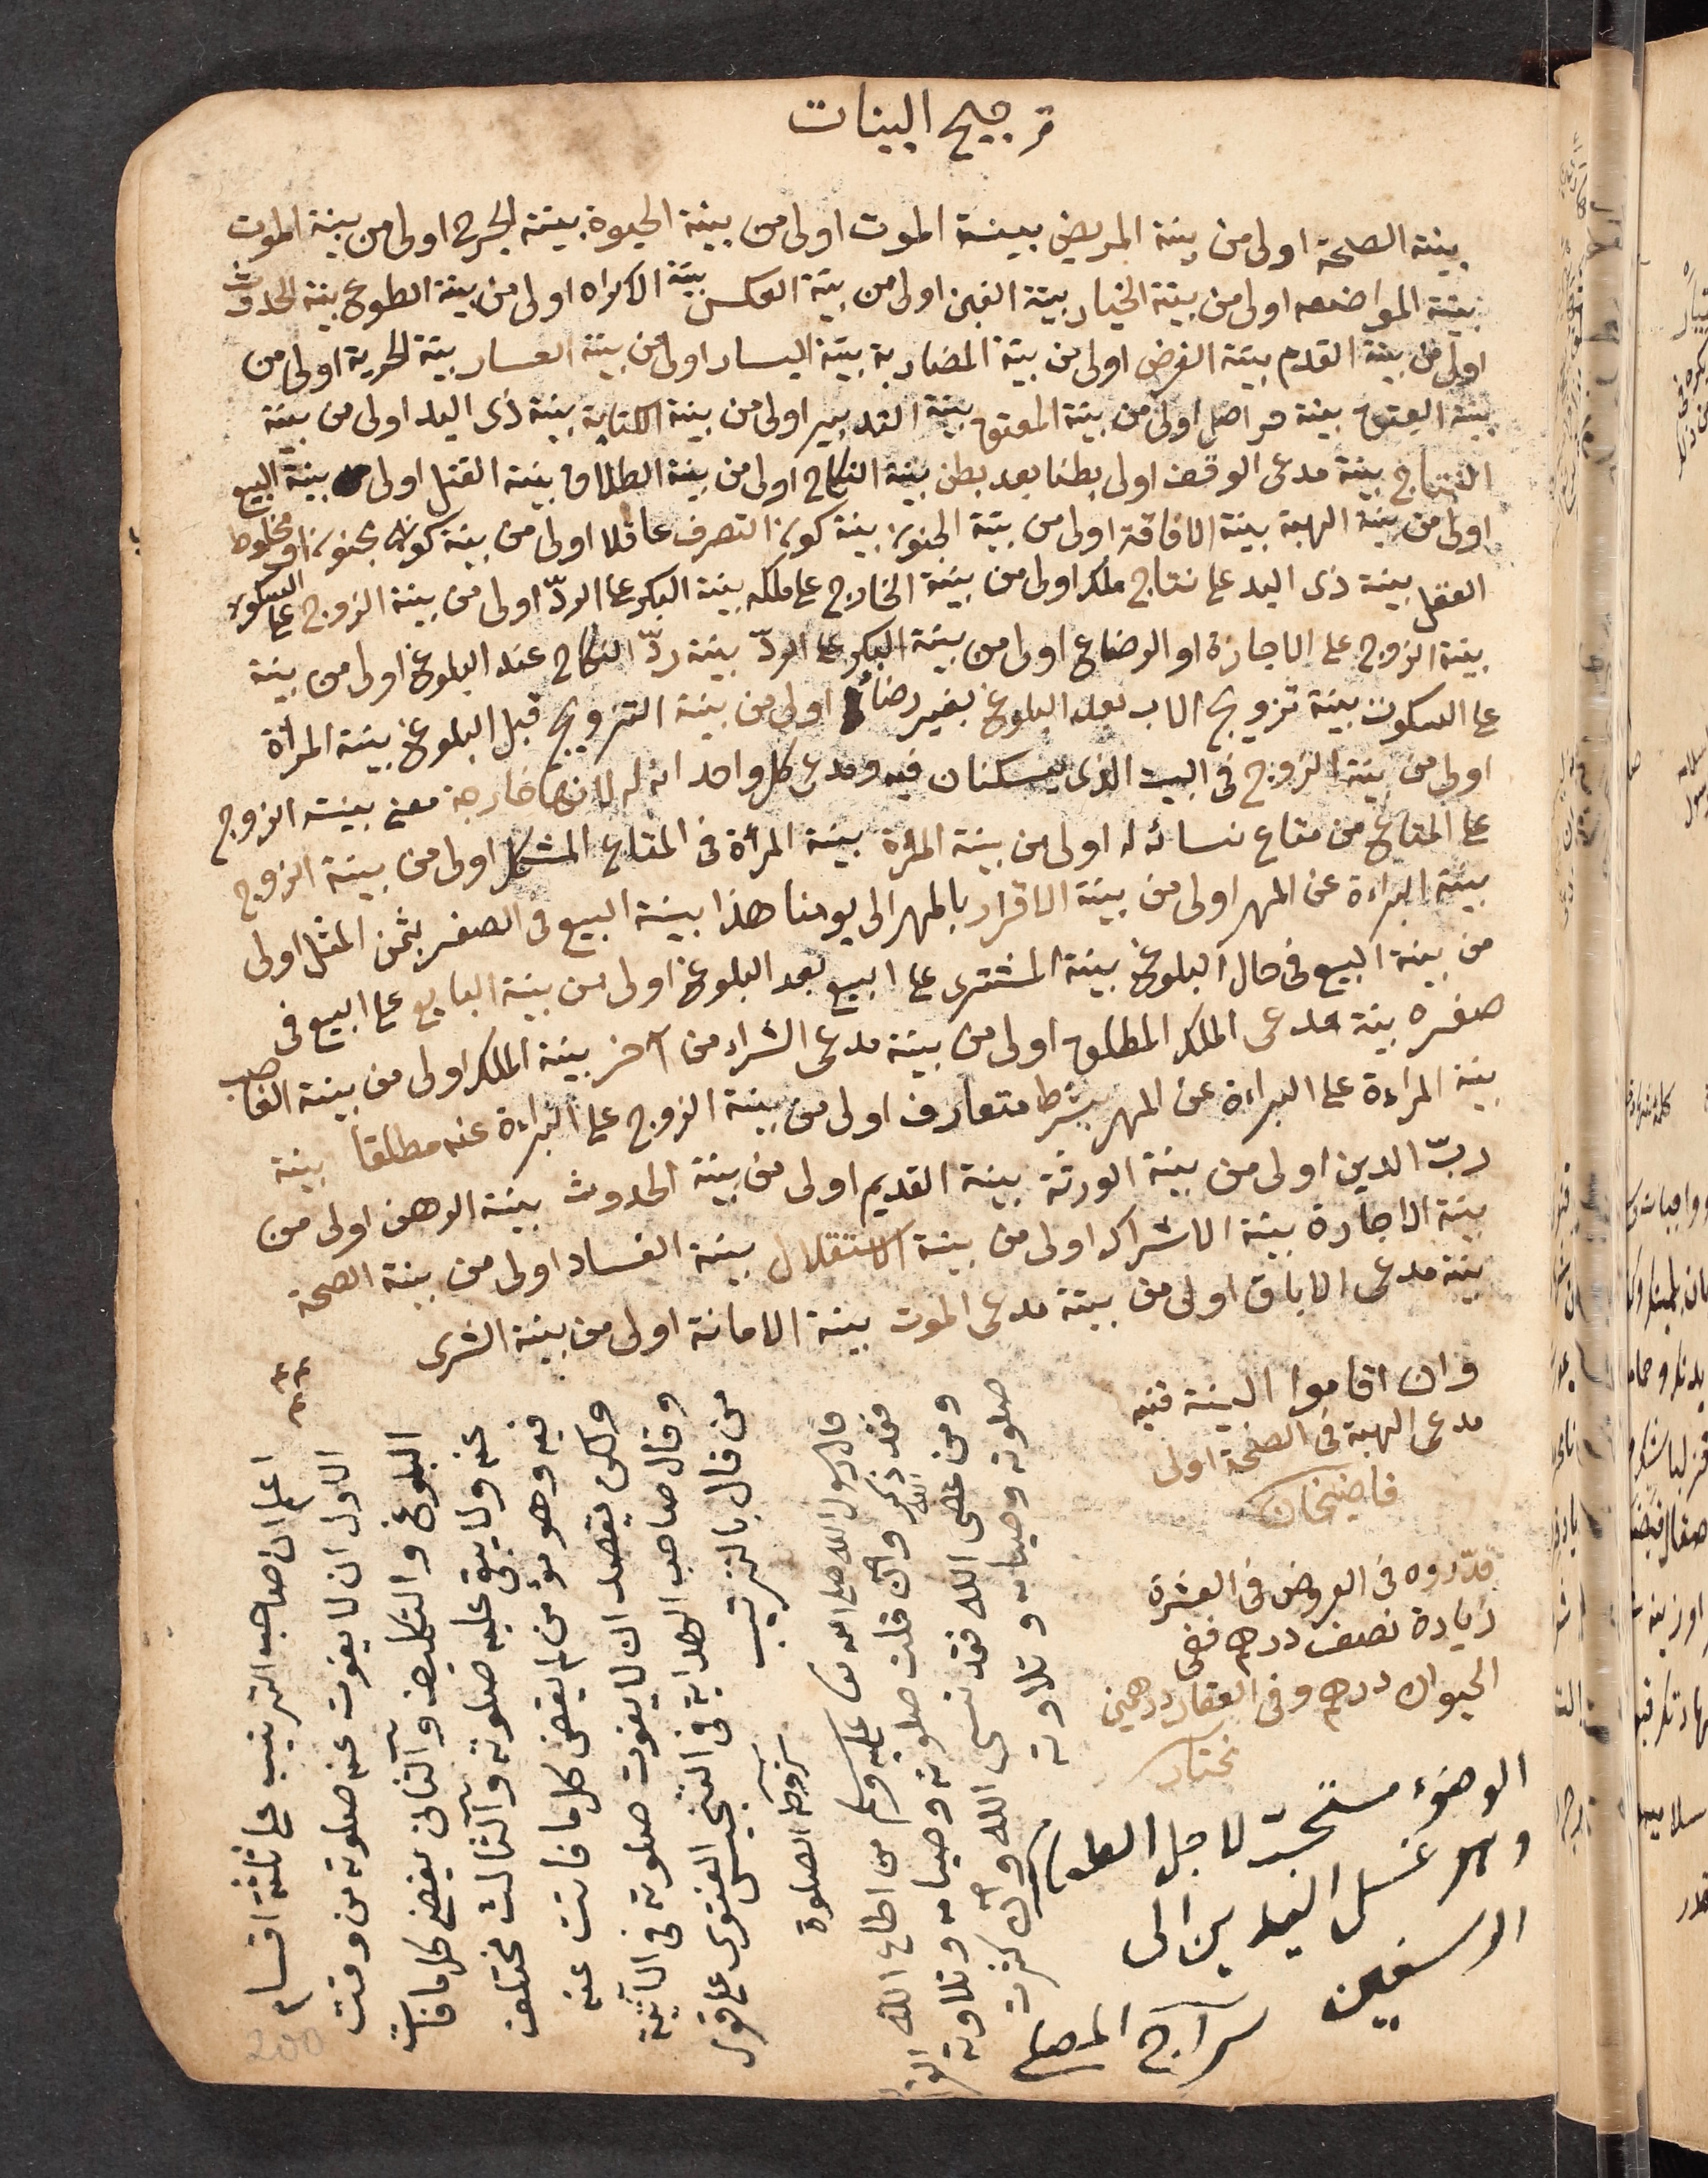 ترجيح البينات
بينة الصحة اولى من بينة المريض بينة الموت اولى من بينة الحيوة بينة الجرح اولى من بينة الموت
بينة المواضعه اولى من بينة الخيار بينة الغبن اولى من بينة العكس بينة الاكراه اولى من بينة الطوع بينة الحدوث
اولى من بينة القدم بينة القرض اولى من بينة المضاربة بينة اليسار اولى من بينة العسار بينة الحرية اولى من
بينة العتق بينة حر اصل اولى من بينة المعتق بينة التدبير اولى من بينة الكتابة بينة ذى اليد اولى من بينة
النتاج بينة مدعى الوقف اولى بطنا بعد بطن بينة النكاح اولى من بينة الطلاق بينة القتل اولى بينة البيع
اولى من بينة الهبة بينة الافاقة اولى من بينة الجنون بينة كون التصرف عاقلا اولى من بينة كونه مجنونا او مخلوط
العقل بينة ذى اليد على نتاج ملكه اولى من بينة الخارج على ملكه بينة البكر على الردّ اولى من بينة الزوج على السكوت
بينة الزوج على الاجازة او الرضاع اولى من بينة البكر على الردّ بينة ردّ النكاح عند البلوغ اولى من بينة
على السكوت بينة تزويج الاب بعد البلوغ بغير رضائها اولى من بينة التزويج قبل البلوغ بينة المرأة
اولى من بينة الزوج فى البيت الذى يسكنان فيه ومدعى كل واحد انه له لانها خارجة معنى بينة الزوج
على المتاع من متاع نسائه له اولى من بينة المرأة بينة المرأة فى المتاع المشكل اولى من بينة الزوج
بينة البراءة عن المهر اولى من بينة الاقرار بالمهر الى يومنا هذا بينة البيع فى الصغر بثمن المثل اولى
من بينة البيع فى حال البلوغ بينة المشترى على البيع بعد البلوغ اولى من بينة البايع على البيع فى
صغره بينة مدعى الملك المطلق اولى من بينة مدعى الشراء من آخر بينة الملك اولى من بينة الغاصب
بينة المراءة على البراءة عن المهر بشرط متعارف اولى من بينة الزوج على البراءة عنه مطلقا بينة
ربّ الدين اولى من بينة الورثة بينة القديم اولى من بينة الحدوث بينة الرهن اولى من
بينة الاجارة بينة الاشراك اولى من بينة الاستقلال بينة الفساد اولى من بينة الصحة
بينة مدعى الاباق اولى من بينة مدعى الموت بينة الامانة اولى من بينة الشرى
وان اقاموا البينة فبينة
مدعى الهبة فى الصحة اولى
قاضيخان
قدّروه فى العروض فى العشرة
زيادة نصف درهم وفى
الحيوان درهم وفى العقار درهمين
مختار
الوضوء مستحبّ لاجل الطعام
وهو غسل اليدين الى
الرسغين
سراج المصلى
قال رسول الله صلى الله تعا عليه وسلم من اطاع الله
فقد ذكر الله وان قلت صلوته وصيامه وتلاوته
ومن عصى الله فقد نسى الله وان كثرت
صلوته وصيامه وتلاوته
اعلم ان صاحب الترتيب على ثلثة اقسام
الاول ان لا يفوت عنه صلوته من وقت
البلوغ والتكليف والثانى يقضى كل ما فات
عنه ولا يبقى عليه صلوته والثالث مختلف
فيه وهو مؤمن لم يقض كل ما فاتت عنه
ولكن يقصد ان لا يفوت صلوته فى الآتية
وقال صاحب الهداية فى التجنيس الفتوى على قول
من قال بالترتيب
شروط الصلوة
200